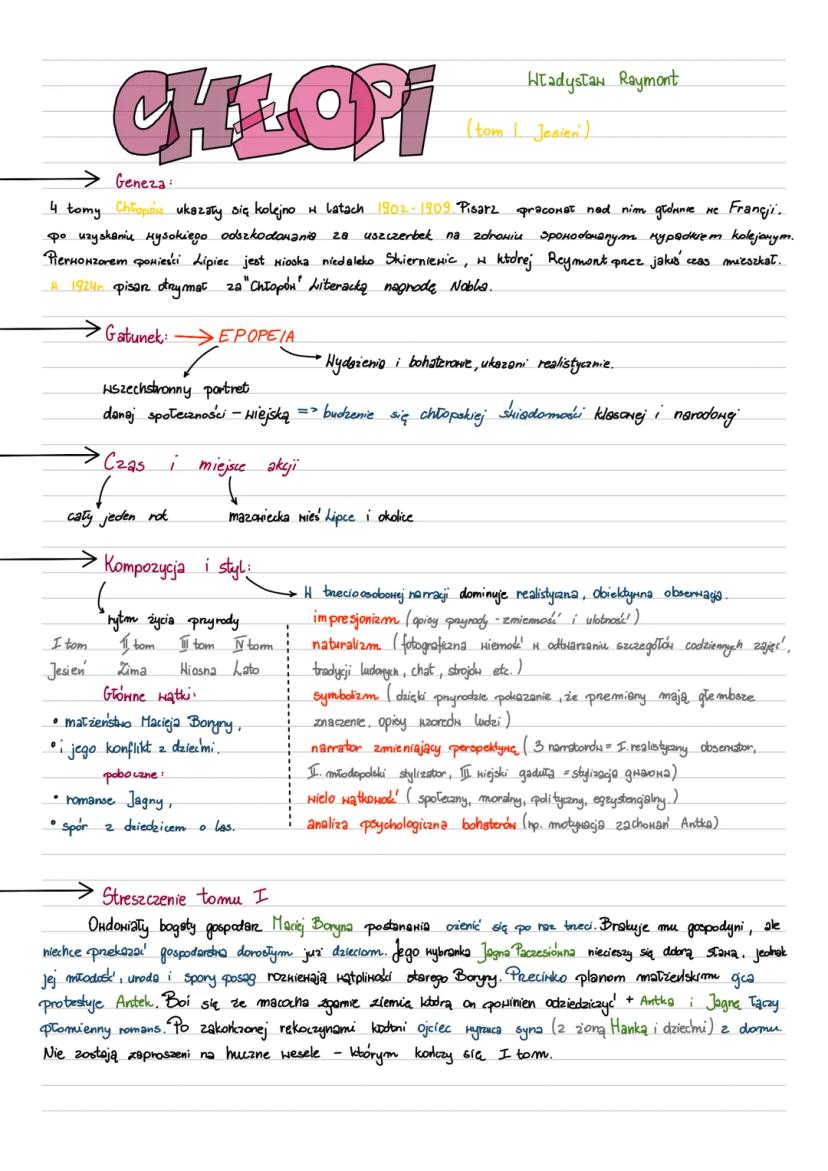 CHŁOPI
Władysław Raymont
(tom I. Jesień)
Geneza:
4 tomy Chłopów ukazały się kolejno w latach 1902-1909. Pisarz pracował nad nim głównie we Francji.
po uzyskaniu wysokiego odszkodowania za uszczerbek na zdrowiu spowodowanym wypadkiem kolejowym.
Pierwowzorem powieści Lipiec jest wioska niedaleko Skierniewic, w której Reymont przez jakiś czas mieszkał.
W 1924r. pisarz otrymał za "Chłopów" Literacką nagrodę Nobla.
Gatunek: EPOPEIA
Wydażenia i bohaterowie, ukazani realistycznie.
wszechstronny portret
danej społeczności - wiejską => budzenie się chłopskiej świadomości klasowej i narodowej
Czas i miejsce akcji
cały jeden rok mazowiecka wieś Lipce i okolice
Kompozycja i styl:
W trzecioosobowej narracji dominuje realistyczna, obiektywna obserwacja.
rytm życia przyrody
I tom II tom III tom IV tom
Jesień Zima Wiosna Lato
Główne wątki:
• małżeństwo Macieja Boryny,
• i jego konflikt z dziećmi.
poboczne:
• romanse Jagny,
• spór z dziedzicem o las.
impresjonizm (opisy przyrody - zmienność i ulotność)
naturalizm (fotograficzna wierność w odtwarzaniu szczegółów codziennych zajęć,
tradycji ludowych, chat, strojów etc.)
symbolizm (dzięki przyrodzie pokazanie, że przemiany mają głembsze
znaczenie, opisy wzorców ludzi)
narrator zmieniający perspektywę (3 narratorów = I. realistyczny obserwator,
II. młodopolski stylizator, III wiejski gaduła = stylizacja gwarowa)
wielo wątkowość (społeczny, moralny, polityczny, egzystencjalny.)
analiza psychologiczna bohaterów (np. motywacja zachowań Antka)
Streszczenie tomu I
Owdowiały bogaty gospodarz Maciej Boryna postanawia ożenić się po raz trzeci. Brakuje mu gospodyni, ale
niechce przekazać gospodarstwa dorosłym już dzieciom. Jego wybranka Jagna Paczesiówna niecieszy się dobrą sławą, jednak
jej młodość, uroda i spory posag rozwiewają wątpliwości starego Boryny. Przeciwko planom małżeńskim ojca
protestuje Antek. Boi się że macocha zgarnie ziemię którą on powinien odziedziczyć + Antka i Jagnę łączy
płomienny romans. Po zakończonej rękoczynami kłótni ojciec wyrzuca syna (z żoną Hanką i dziećmi) z domu.
Nie zostają zaproszeni na huczne wesele - którym kończy się I tom.